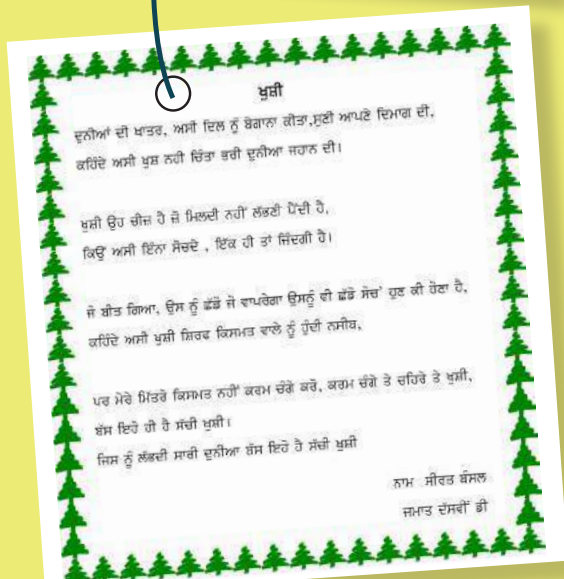 ਖੁਸ਼ੀ
ਦੁਨੀਆਂ ਦੀ ਖਾਤਰ, ਅਸੀ ਦਿਲ ਨੂੰ ਬੇਗਾਨਾ ਕੀਤਾ,ਸੁਣੀ ਆਪਣੇ ਦਿਮਾਗ ਦੀ,
ਕਹਿੰਦੇ ਅਸੀ ਖੁਸ਼ ਨਹੀ ਚਿੰਤਾ ਭਰੀ ਦੁਨੀਆ ਜਹਾਨ ਦੀ।
ਖੁਸ਼ੀ ਉਹ ਚੀਜ਼ ਹੈ ਜੋ ਮਿਲਦੀ ਨਹੀਂ ਲੱਭਣੀ ਪੈਂਦੀ ਹੈ,
ਕਿਉਂ ਅਸੀ ਇੰਨਾ ਸੋਚਦੇ , ਇੱਕ ਹੀ ਤਾਂ ਜਿੰਦਗੀ ਹੈ।
ਜੋ ਬੀਤ ਗਿਆ, ਉਸ ਨੂੰ ਛੱਡੋ ਜੋ ਵਾਪਰੇਗਾ ਉਸਨੂੰ ਵੀ ਛੱਡੋ ਸੋਚਾਂ ਹੁਣ ਕੀ ਹੋਣਾ ਹੈ,
ਕਹਿੰਦੇ ਅਸੀ ਖੁਸ਼ੀ ਸ਼ਿਰਫ ਕਿਸਮਤ ਵਾਲੇ ਨੂੰ ਹੁੰਦੀ ਨਸੀਬ,
ਪਰ ਮੇਰੇ ਮਿੱਤਰੋ ਕਿਸਮਤ ਨਹੀਂ ਕਰਮ ਚੰਗੇ ਕਰੋ, ਕਰਮ ਚੰਗੇ ਤੇ ਚਹਿਰੇ ਤੇ ਖੁਸ਼ੀ,
ਬੱਸ ਇਹੋ ਹੀ ਹੈ ਸੱਚੀ ਖੁਸ਼ੀ।
ਜਿਸ ਨੂੰ ਲੱਭਦੀ ਸਾਰੀ ਦੁਨੀਆ ਬੱਸ ਇਹੋ ਹੈ ਸੱਚੀ ਖੁਸ਼ੀ
ਨਾਮ ਸੀਰਤ ਬੰਸਲ
ਜਮਾਤ ਦੱਸਵੀਂ ਡੀ